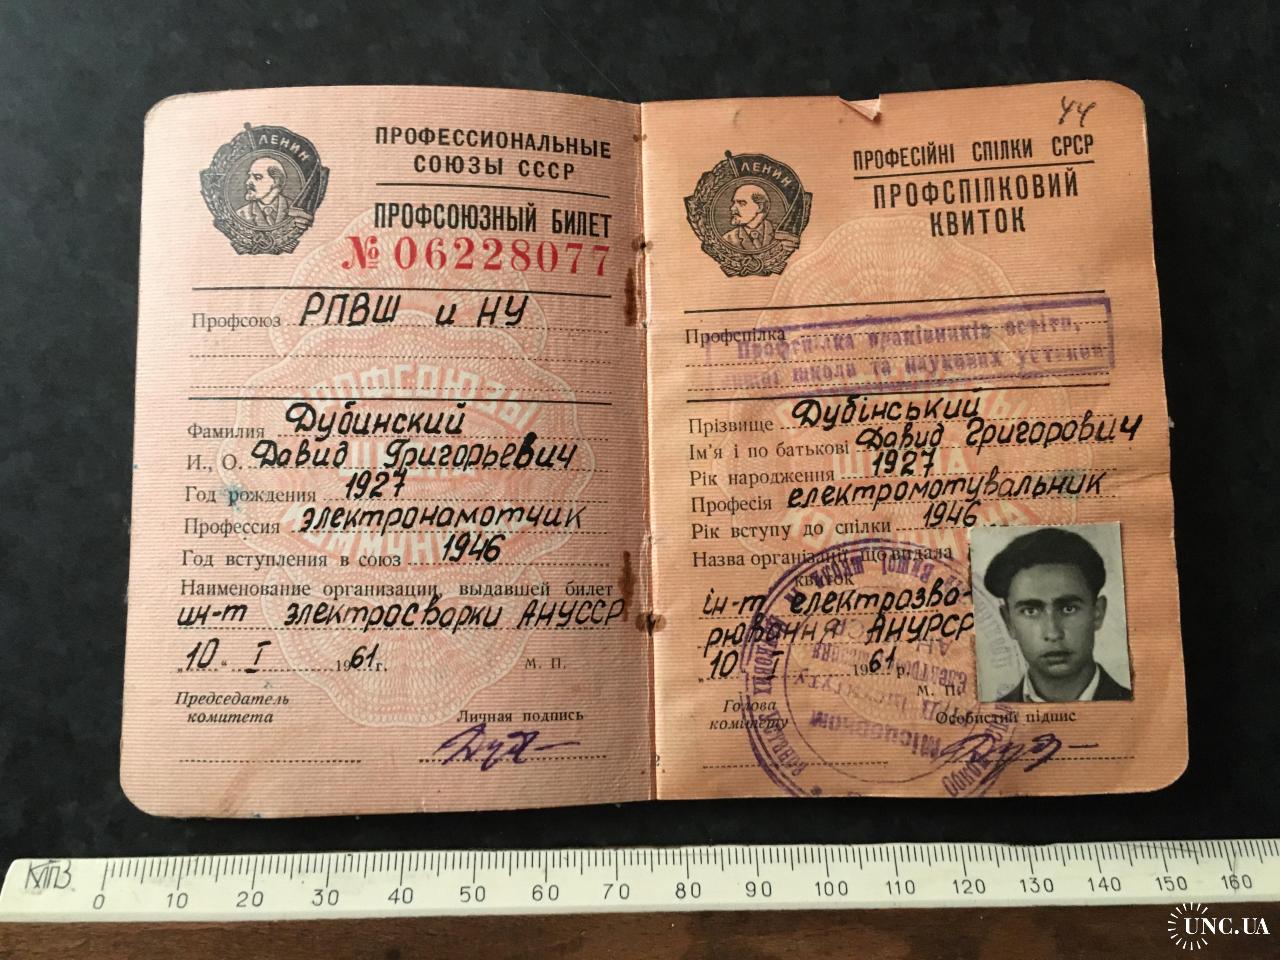 ЛЕНИН
ПРОФЕССИОНАЛЬНЫЕ
СОЮЗЫ СССР
ПРОФСОЮЗНЫЙ БИЛЕТ
№ 06228077
Профсоюз РПВШ и НУ
Фамилия Дубинский
И., О. Давид Григорьевич
Год рождения 1927
Профессия электронамотчик
Год вступления в союз 1946
Наименование организации, выдавшей билет
ин-т электросварки АНУССР
„10“ I 1961 г. М. П.
Председатель
комитета
Личная подпись
44
ЛЕНИН
ПРОФЕСІЙНІ СПІЛКИ СРСР
ПРОФСПІЛКОВИЙ
КВИТОК
Профспілка
Профспілка працівників освіти,
вищої школи та наукових установ
Прізвище Дубінський
Ім'я і по батькові Давид Григорович
Рік народження 1927
Професія електромотувальник
Рік вступу до спілки 1946
Назва організації, що видала
квиток
ін-т електрозва-
рювання АНУРСР
„10 I 1961 р.
М. П.
Голова
комітету
Особистий підпис
2
КПЗ
0 10 20 30 40 50 60 70 80 90 100 110 120 130 140 150 160
UNC.UA